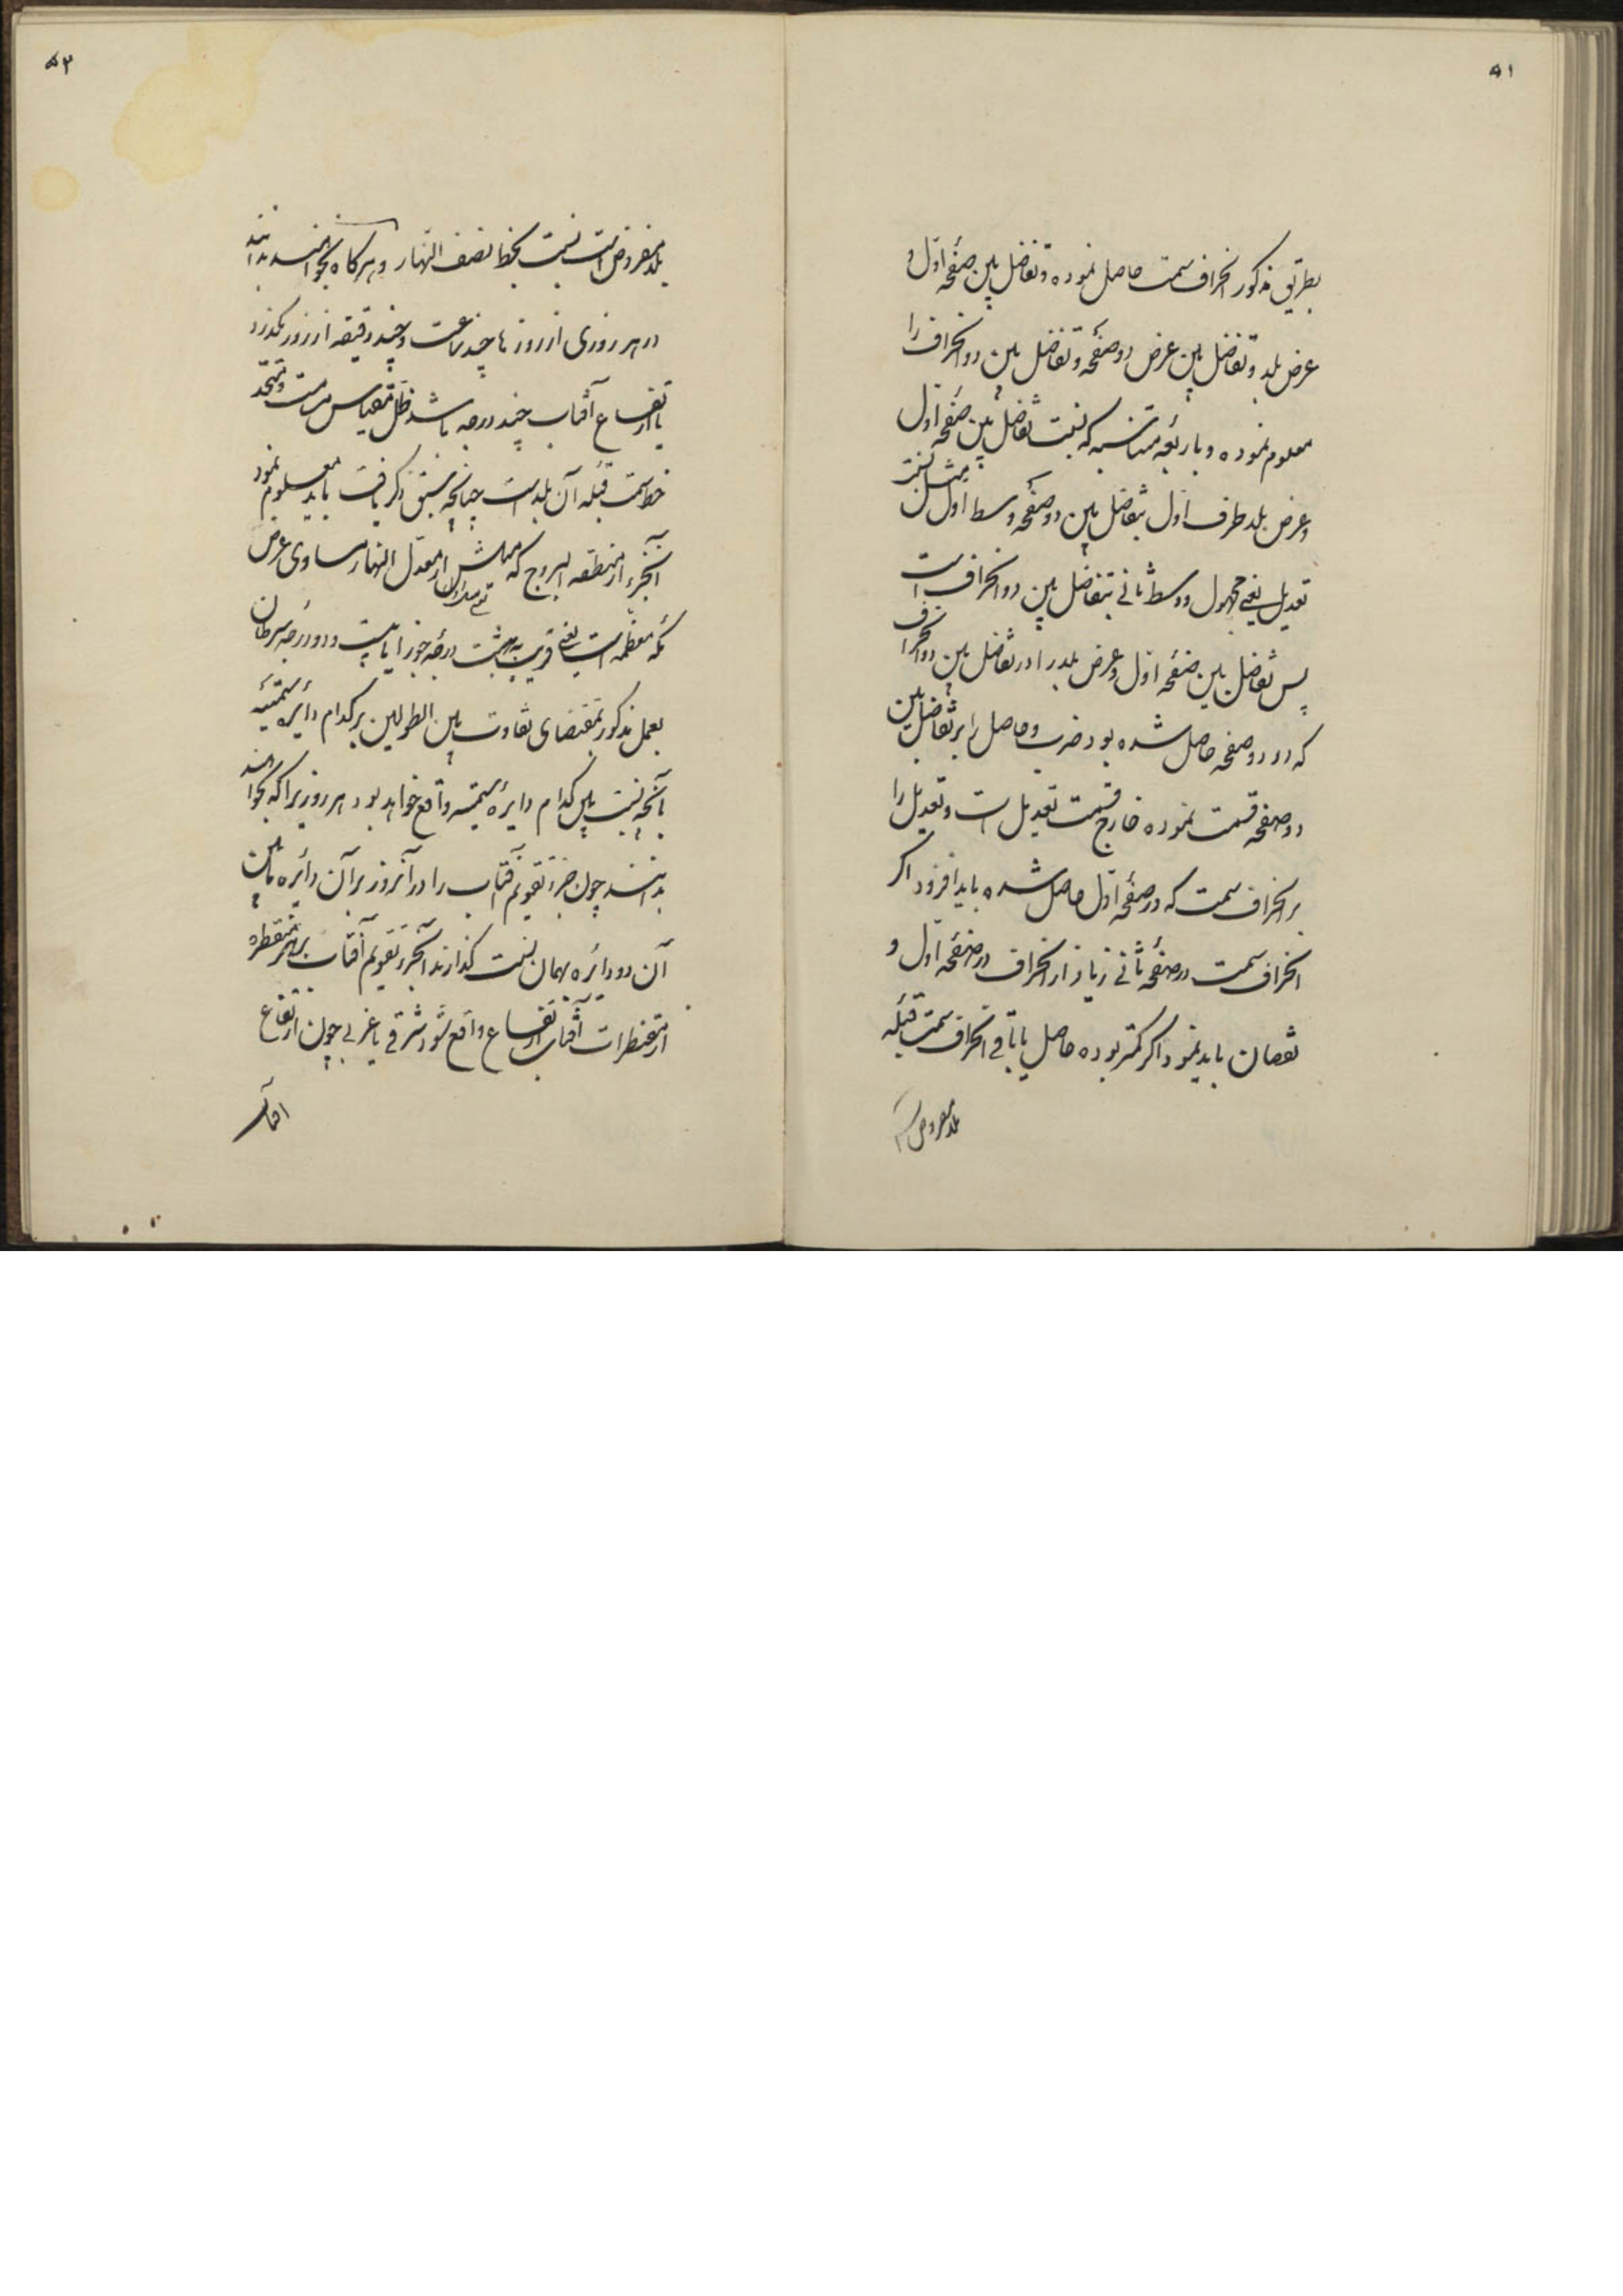 ۵۱
بطریق مذکور انحراف سمت حاصل نموده و تفاضل بین صفحهٔ اول و
عرض بلد و تفاضل بین عرض دو صفحه و تفاضل بین دو انحراف را
معلوم نموده و باربعه متناسبه که نسبت تفاضل بین صفحهٔ اول
و عرض بلد طرف اول بتفاضل بین دو صفحه وسط اول مثل نسبت
تعدیل یعنی مجهول و وسط ثانی بتفاضل بین دو انحراف است
پس تفاضل بین صفحهٔ اول و عرض بلد را در تفاضل بین دو انحراف
که در دو صفحه حاصل شده بود ضرب و حاصل را بر تفاضل بین
دو صفحه قسمت نموده خارج قسمت تعدیل است و تعدیل را
بر انحراف سمت که در صفحهٔ اول حاصل شده باید افزود اگر
انحراف سمت در صفحهٔ ثانی زیاد از انحراف در صفحهٔ اول و
نقصان باید نمود اگر کمتر بوده حاصل یا باقی انحراف سمت قبله
بلد مفروض است
۵۲
بلد مفروض است نسبت بخط نصف النهار و هرگاه بخواهند بدانند
در هر روزی از روزها چند ساعت و چند دقیقه از روز بگذرد
یا ارتفاع آفتاب چند درجه باشد ظل مقیاس مسامت و متحد
خط سمت قبله آن بلد است چنانچه سبق ذکر یافت باید معلوم نمود
آنجزء از منطقه البروج که میلش از معدل النهار مساوی عرض
مکه معظمه است یعنی قریب به هشت درجه جوزا یا بیست و دو درجه سرطان
بعمل مذکور بمقتضای تفاوت بین الطولین بر کدام دایره سمتیه
یا بچه نسبت بین کدام دایره سمتیه واقع خواهد بود هر روزیرا که بخواهند
بدانند چون جزء تقویم آفتاب را در آنروز بر آن دائره یا بین
آن دو دائره بهمان نسبت گذارند آنجزء تقویم آفتاب بر هر مقنطره
از مقنطرات ارتفاع آفتاب واقع شود شرقی یا غربی چون ارتفاع
آفتاب